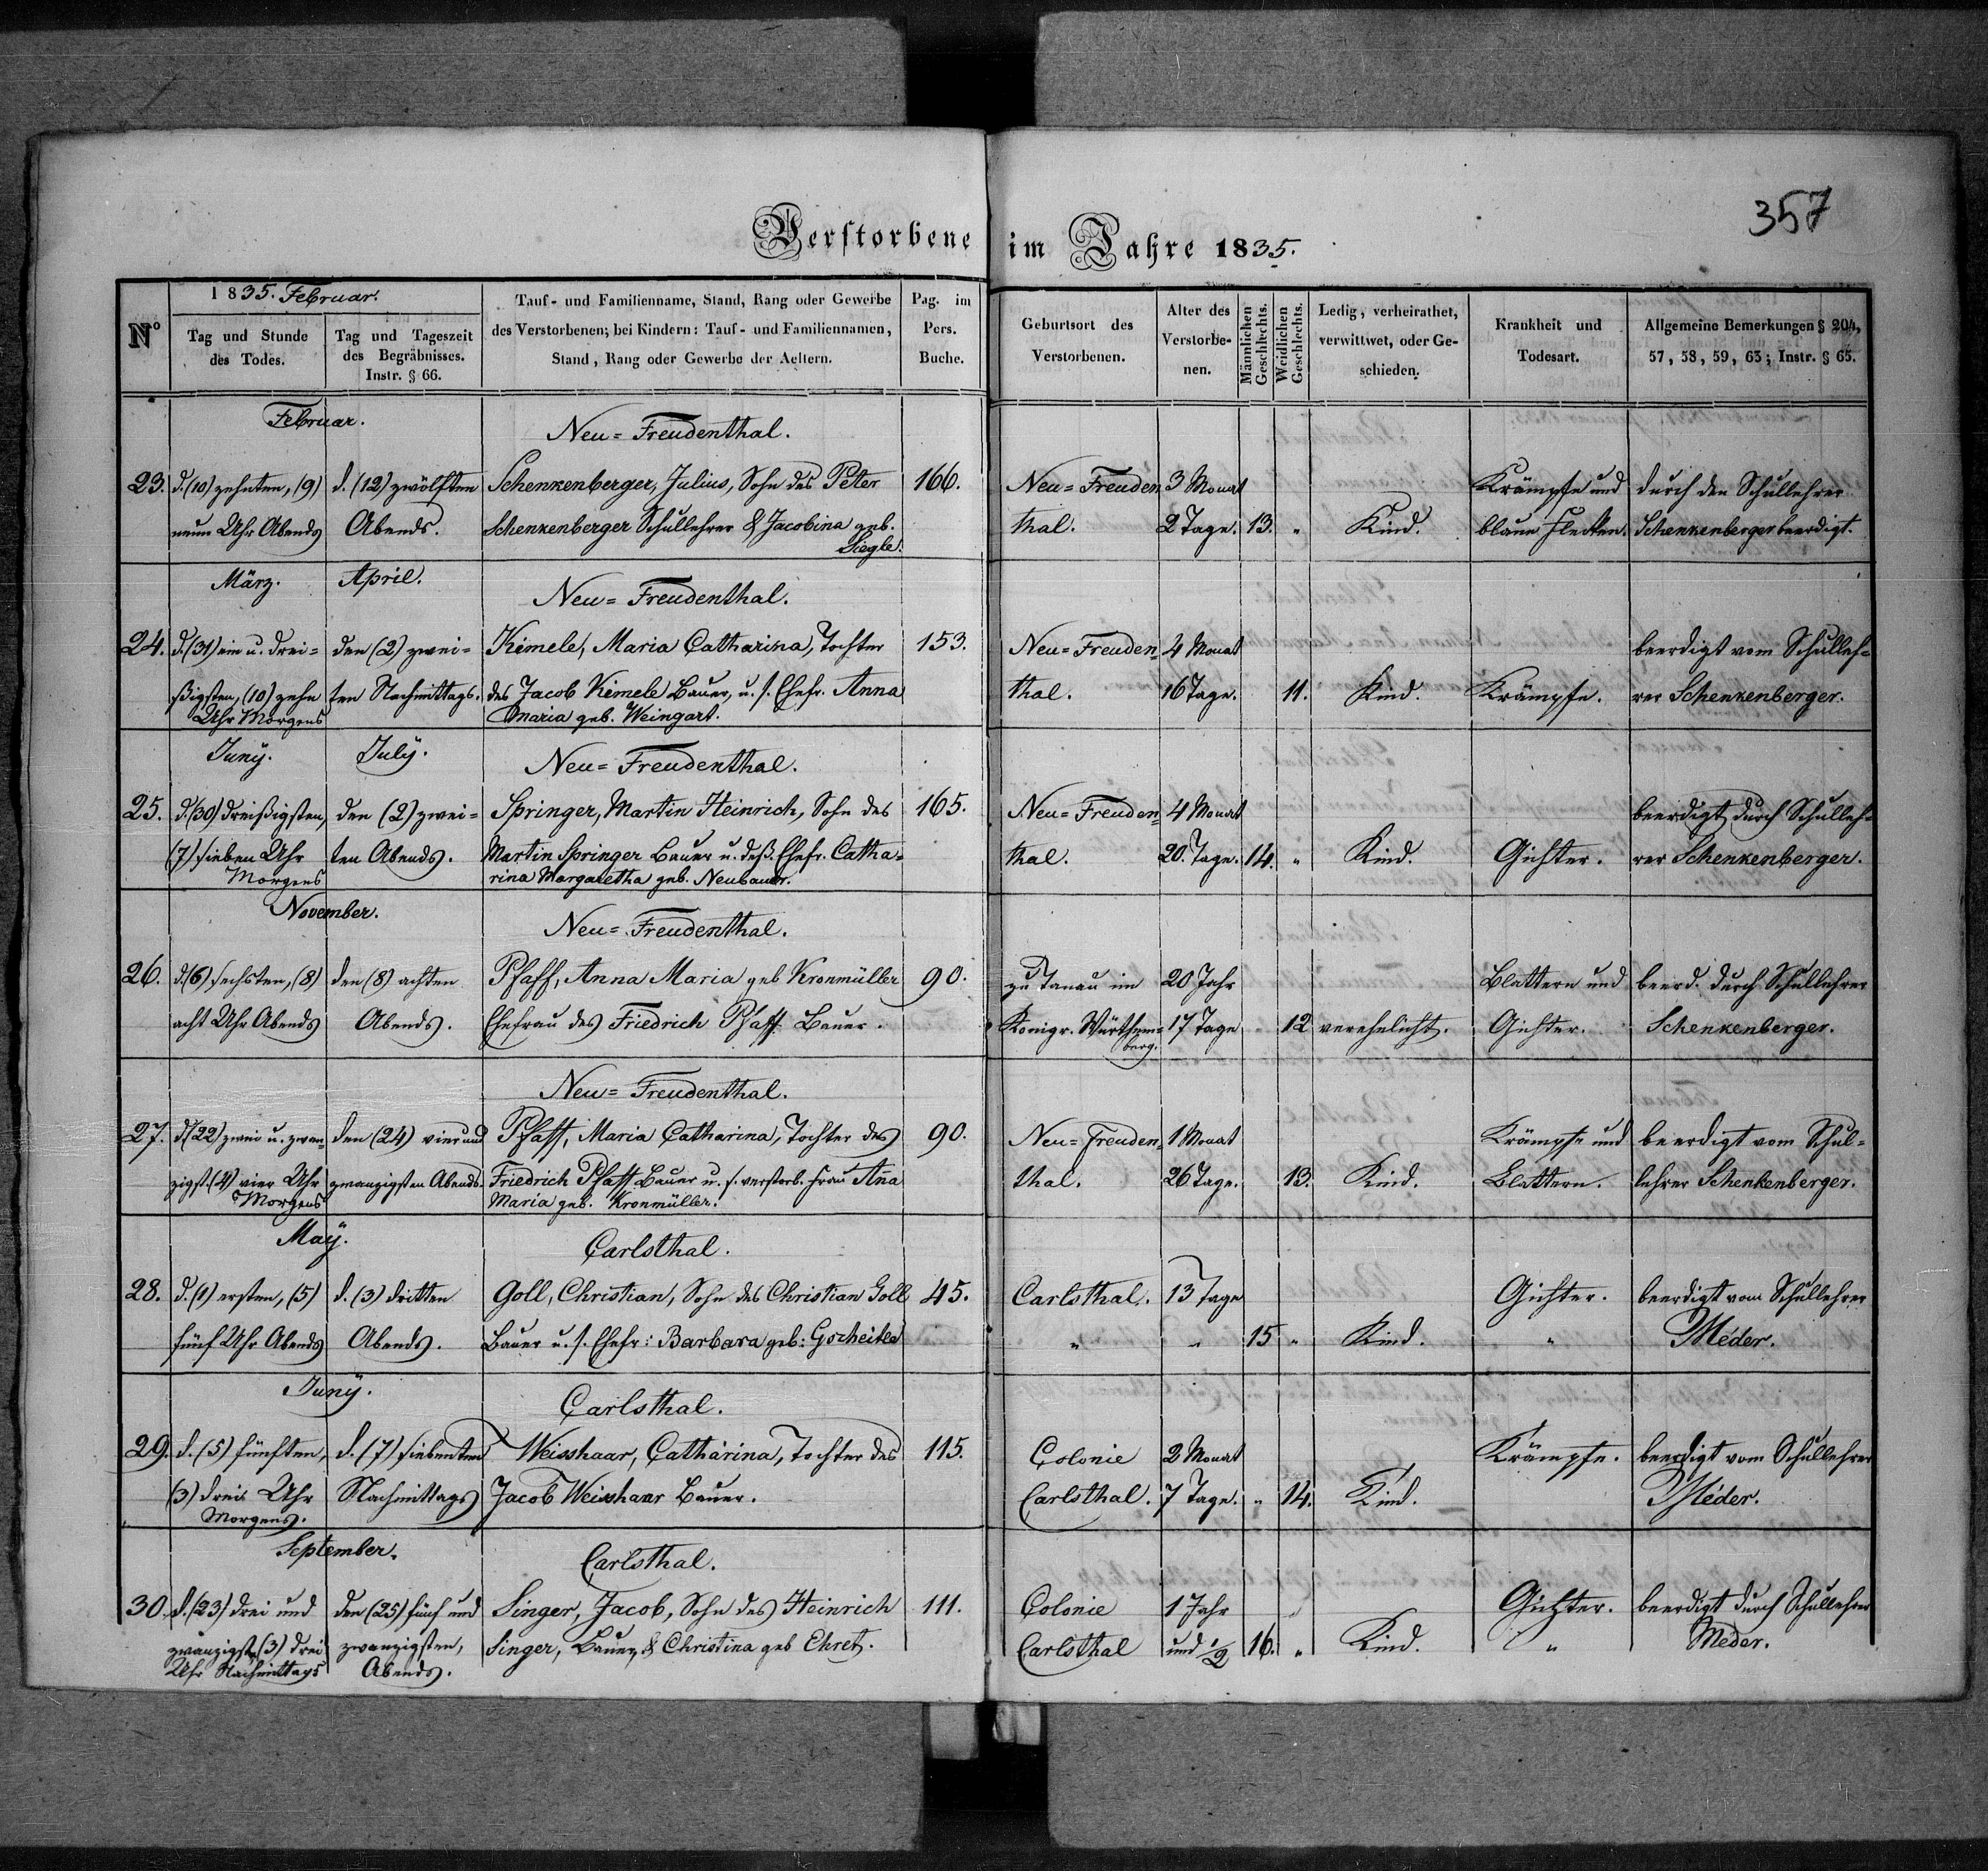 357
Verstorbene im Jahre 1835.
1835. Februar.
No
Tag und Stunde
des Todes.
Tag und Tageszeit
des Begräbnisses.
Instr. § 66.
Tauf- und Familienname, Stand, Rang oder Gewerbe
des Verstorbenen; bei Kindern: Tauf- und Familiennamen,
Stand, Rang oder Gewerbe der Aeltern.
Pag. im
Pers.
Buche.
Geburtsort des
Verstorbenen.
Alter des
Verstorbe-
nen.
Männlichen
Geschlechts.
Weidlichen
Geschlechts.
Ledig, verheirathet,
verwittwet, oder Ge-
schieden.
Krankheit und
Todesart.
Allgemeine Bemerkungen § 204,
57, 58, 59, 63; Instr. § 65.
Februar.
Neu=Freudenthal.
23. d. (10) zehnten, (9) d. (12) zwölften Schenkenberger, Julius, Sohn des Peter 166. Neu=Freuden 3 Monat Krämpfe und durch den Schullehrer
neun Uhr Abends Abends. Schenkenberger Schullehrer & Jacobina geb. thal. 2 Tage. 13. " Kind. blaue Flecken. Schenkenberger beerdigt.
Siegle.
März. April.
Neu=Freudenthal.
24. d. (31) ein u. drei= den (2) zwei= Kimele, Maria Catharina, Tochter 153. Neu=Freuden= 4 Monat beerdigt vom Schulleh=
ßigsten, (10) zehn ten Nachmittags. des Jacob Kimele Bauer, u. s. Ehefr. Anna thal. 16 Tage. 11. Kind. Krämpfe. rer Schenkenberger.
Uhr Morgens Maria geb. Weingart.
Juny. July.
Neu=Freudenthal.
25. d. (30) dreißigsten, den (2) zwei= Springer, Martin Heinrich, Sohn des 165. Neu=Freuden= 4 Monat beerdigt durch Schulleh=
(7) sieben Uhr ten Abends. Martin Springer Bauer u. deß. Ehefr. Catha= thal. 20. Tage. 14. " Kind. Gichter. rer Schenkenberger.
Morgens rina Margaretha geb. Neubauer.
November.
Neu=Freudenthal.
26. d. (6) sechsten, (8) den (8) achten Pfaff, Anna Maria geb Kronmüller 90. zu Tanau im 20 Jahr Blattern und beerd. durch Schullehrer
acht Uhr Abends Abends. Ehefrau des Friedrich Pfaff Bauer. Königr. Würthem= 17 Tage 12 verehelicht. Gichter. Schenkenberger.
berg.
Neu=Freudenthal.
27. d. (22) zwei u. zwan den (24) vier und Pfaff, Maria Catharina, Tochter des 90. Neu=Freuden= 1 Monat Krämpfe und beerdigt vom Schul=
zigst. (4) vier Uhr zwanzigsten Abends. Friedrich Pfaff Bauer u. s. verstorb. Frau Ana thal. 26 Tage. 13. Kind. Blattern. lehrer Schenkenberger.
Morgens Maria geb. Kronmüller.
May.
Carlsthal.
28. d. (1) ersten, (5) d. (3) dritten Goll, Christian, Sohn des Christian Goll 45. Carlsthal. 13 Tage Gichter. beerdigt vom Schullehrer
fünf Uhr Abends Abends. Bauer u. s. Ehefr: Barbara geb: Gscheitle " " 15 " Kind. " Méder.
Juny.
Carlsthal.
29. d. (5) fünften, d. (7) siebenten Weisshaar, Catharina, Tochter des 115. Colonie 2 Monat Krämpfe. beerdigt vom Schullehrer
(3) drei Uhr Nachmittags Jacob Weisshaar Bauer. Carlsthal. 7 Tage. " 14. Kind. Méder.
Morgens.
September.
Carlsthal.
30. d. (23) drei und den (25) fünf und Singer, Jacob, Sohn des Heinrich 111. Colonie 1 Jahr Gichter. beerdigt durch Schullehrer
zwanzigst. (3) drei zwanzigsten, Singer, Bauer, & Christina geb Ehret. Carlsthal und 1/2 16. " Kind. " Méder.
Uhr Nachmittags Abends.